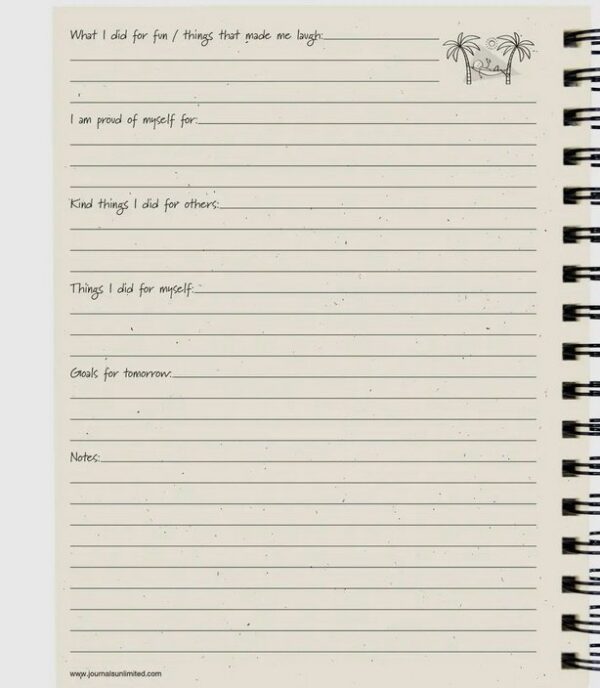 What I did for fun / things that made me laugh:
I am proud of myself for:
Kind things I did for others:
Things I did for myself:
Goals for tomorrow:
Notes:
www.journalsunlimited.com